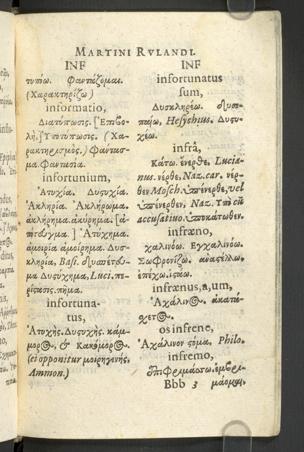 MARTINI RVLANDI.
INF
τυπόω. Φαντάζομαι.
(Χαρακτηρίζω)
informatio,
Διατύπωσις. [Ἐπιβο-
λή.] Ὑποτύπωσις. (Χα-
ρακτηρισμός.) Φάντασ-
μα. Φαντασία.
infortunium,
Ἀτυχία. Δυστυχία.
Ἀκληρία. Ἀκλήρωμα.
ἀκλήρημα. ἀκύρημα. [ἀ-
] Ἀτύχημα.
ἀμοιρία ἀμοίρημα. Δυσ-
κληρία, Basi. δυσπέτημα
Δυστύχημα, Luci. πε-
ρίστασις. πῆμα.
infortuna-
tus,
Ἀτυχής. Δυστυχής. κάμ-
μορος, & Κακόμορος
(ei opponitur μοιρηγενής,
Ammon.)
INF
infortunatus
sum,
Δυσκληρέω. δυσπο-
Hesychius. Δυστυ-
χέω.
infrà,
Κάτω. ἔνερθε, Lucia-
nus. νέρθε, Naz. car. νέρ-
θεν Mosch. ὑπένερθε, vel
ὑπένερθεν, Naz. Ὑπὸ cū
accusatiuo. ὑποκάτωθεν.
infræno,
χαλινόω. Ἐγχαλινόω.
Σωφρονίζω. ἀναστέλλω.
ἐπέχω. ἴσχω.
infrænus, a, um,
Ἀχάλινος. ἀκατά-
σχετος.
os infrene,
Ἀχάλινον στόμα, Philo.
infremo,
Ἐπιβριμάομαι. ἐμβρι-
Bbb 3 μάομαι.